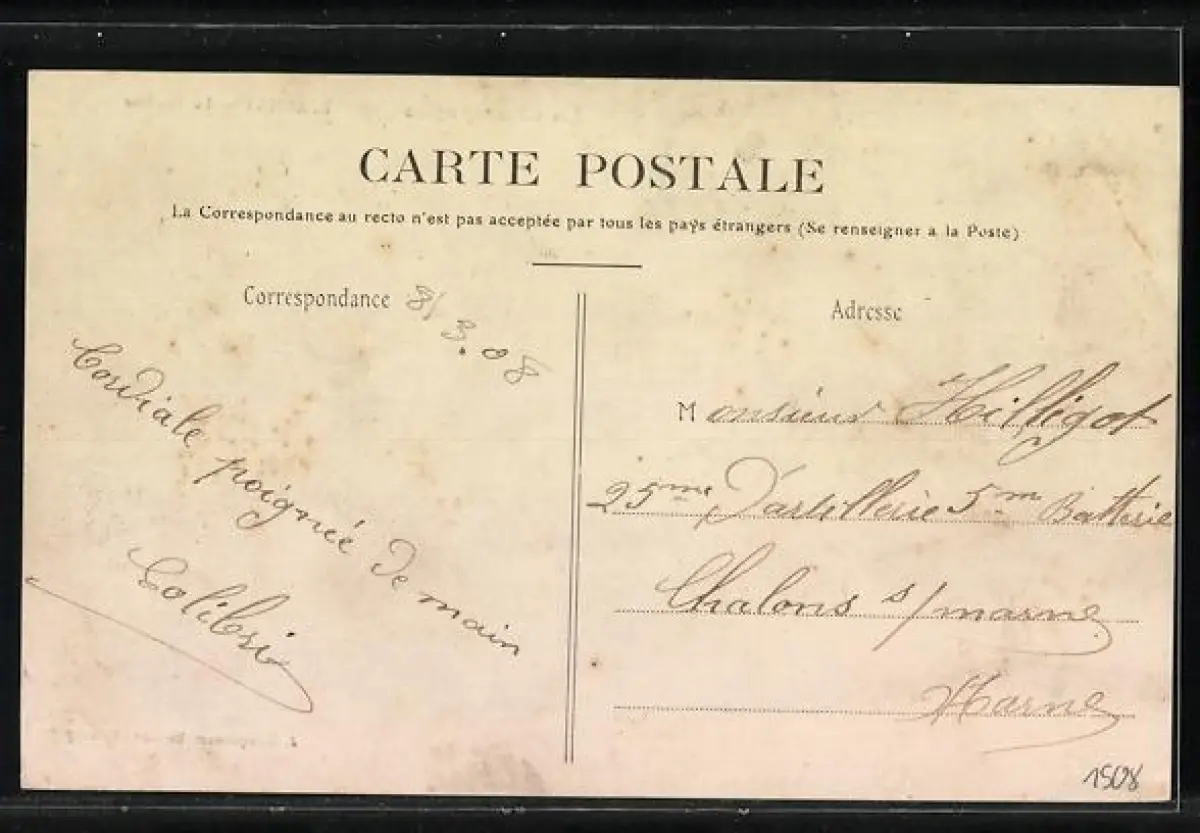 CARTE POSTALE
La Correspondance au recto n'est pas acceptée par tous les pays étrangers (Se renseigner a la Poste)
Correspondance 8/3.08
Cordiale poignée de main
Colibri
Adresse
Monsieur Hilligot
25me D'artillerie 5m Batterie
Chalons s/marne
Marne
1508